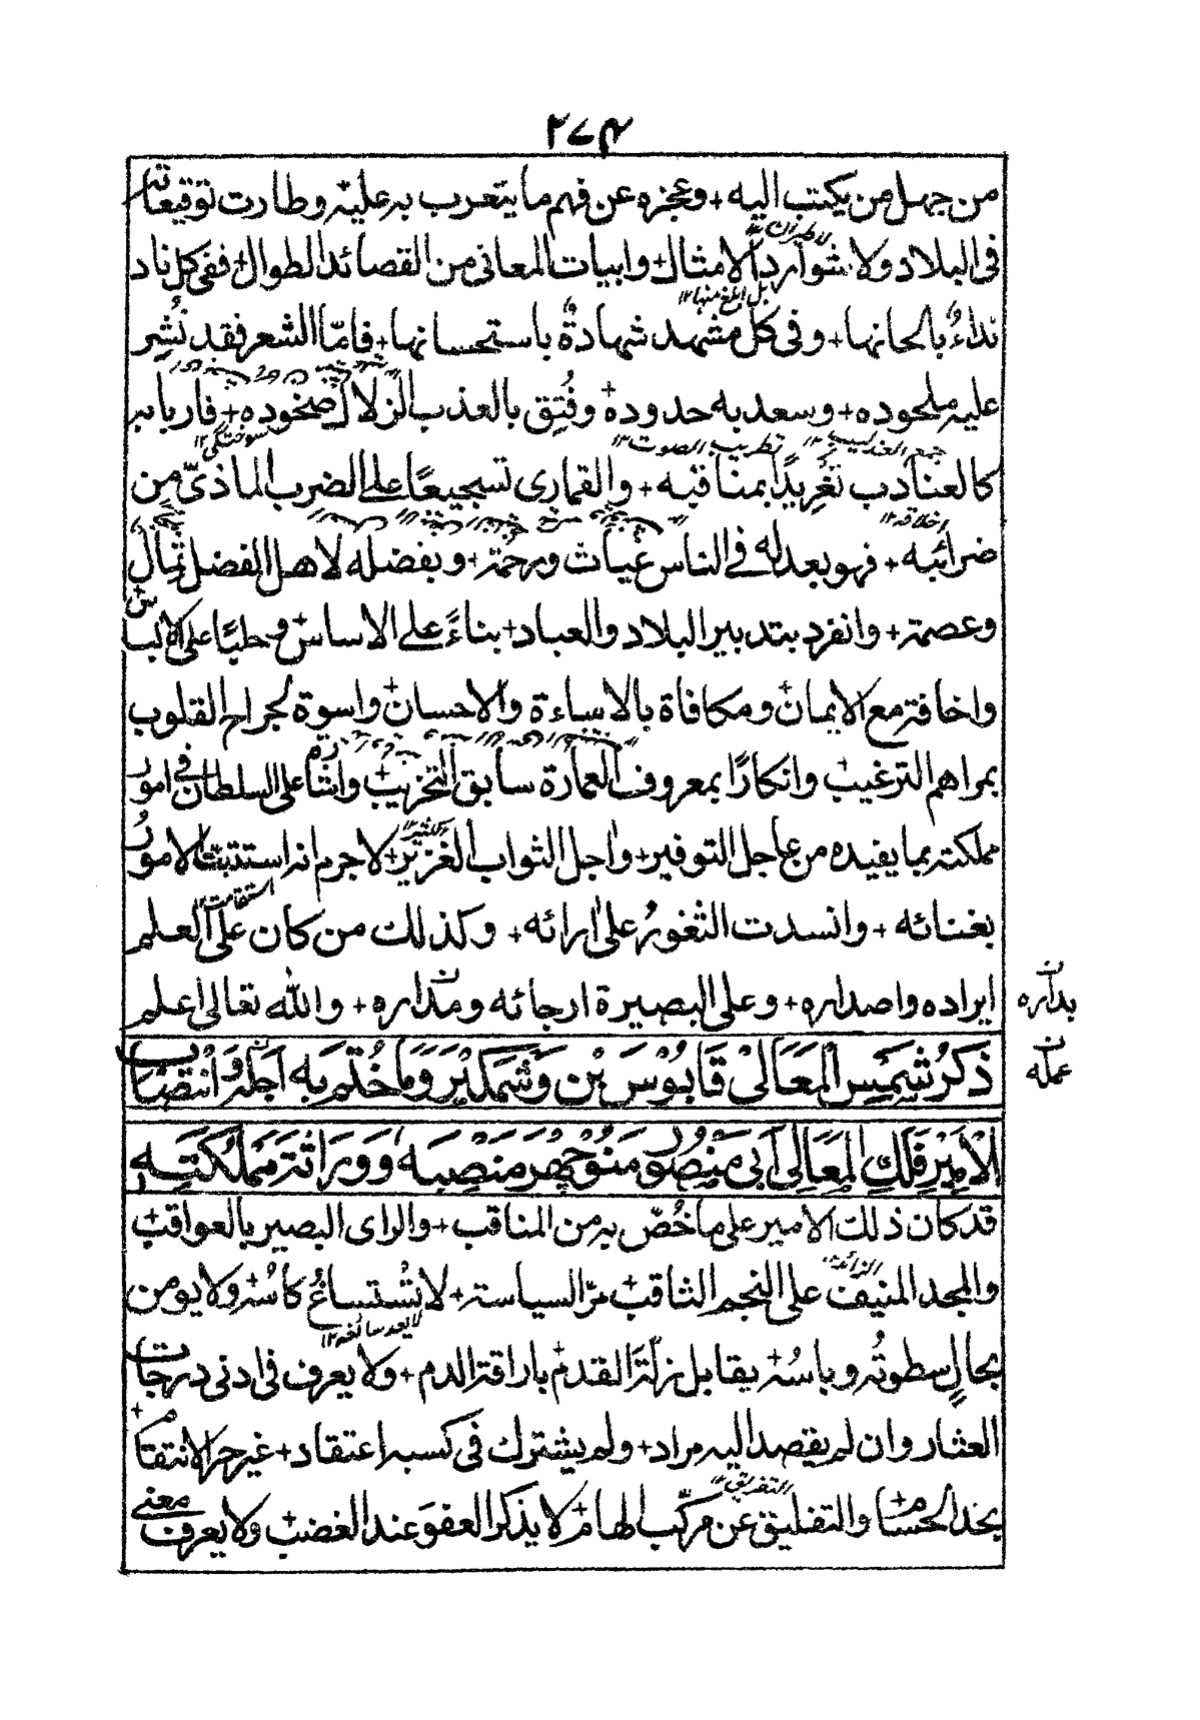 ٢٧٤
من جهل من يكتب اليه + وعجزه عن فهم ما يتعرب به عليه + وطارت توقيعاته
فى البلاد ولا شوارد الامثال + وابيات المعانى من القصائد الطوال + ففى كل ناد
نداءٌ بالحانها + وفى كل مشهد شهادةٌ باستحسانها + فامّا الشعر فقد نُشِر
عليه ملحوده + وسعد به حدوده + وفُتِق بالعذب الزلال صخوده + فاربابه
كالعنادب تغريدًا بمناقبه + والقمارى تسجيعًا على الضرب الماذىّ من
ضرائبه + فهو بعدله فى الناس غياث ورحمة + وبفضله لاهل الفضل ثمال
وعصمة + وانفرد بتدبير البلاد والعباد + بناءً على الاساس + وحلبًا على الابساس
واخافة مع الايمان + ومكافاة بالاساءة والاحسان + واسوة لجراح القلوب
بمراهم الترغيب + وانكارًا بمعروف العمارة سابق التخريب + واشاعلى السلطان فى امور
مملكته بما يفيده من عاجل التوفير + واجل الثواب الغزير + لاجرم انه استتبت الامورُ
بغنائه + وانسدت الثغورُ على ارائه + وكذلك من كان على العلم
ايراده واصداره + وعلى البصيرة ارجائه ومداره + والله تعالى اعلم
ن
بداره
ن
عمله
ذكر شمس المعالى قابوس بن وشمكير وما ختم به اجله وانتصاب
الامير فلك المعالى ابى منصور منوچهر منصبه ووراثة مملكته
قد كان ذلك الامير على ما خُصّ به من المناقب + والراى البصير بالعواقب +
والمجد المنيف على النجم الثاقب + مرّ السياسة + لا تُستساغُ كاسُه + ولا يومن
بحالٍ سطوتُه وباسُه + يقابل زلّة القدم + باراقة الدم + ولا يعرف فى ادنى درجات
العثار وان لم يقصد اليه مراد + ولم يشترك فى كسبه اعتقاد + غير حر الانتقام +
بحد الحسام + والتفليق عن مركّب الهام + لا يذكر العفوَ عند الغضب + ولا يعرف معنى